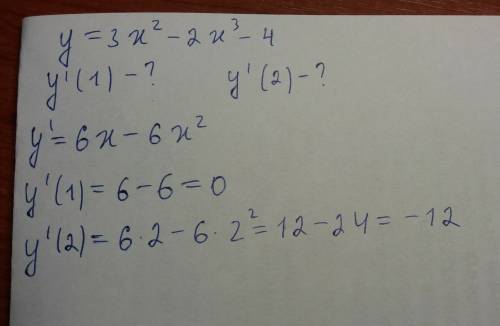 y = 3x² - 2x³ - 4
y'(1) - ? y'(2) - ?
y' = 6x - 6x²
y'(1) = 6 - 6 = 0
y'(2) = 6·2 - 6·2² = 12 - 24 = -12